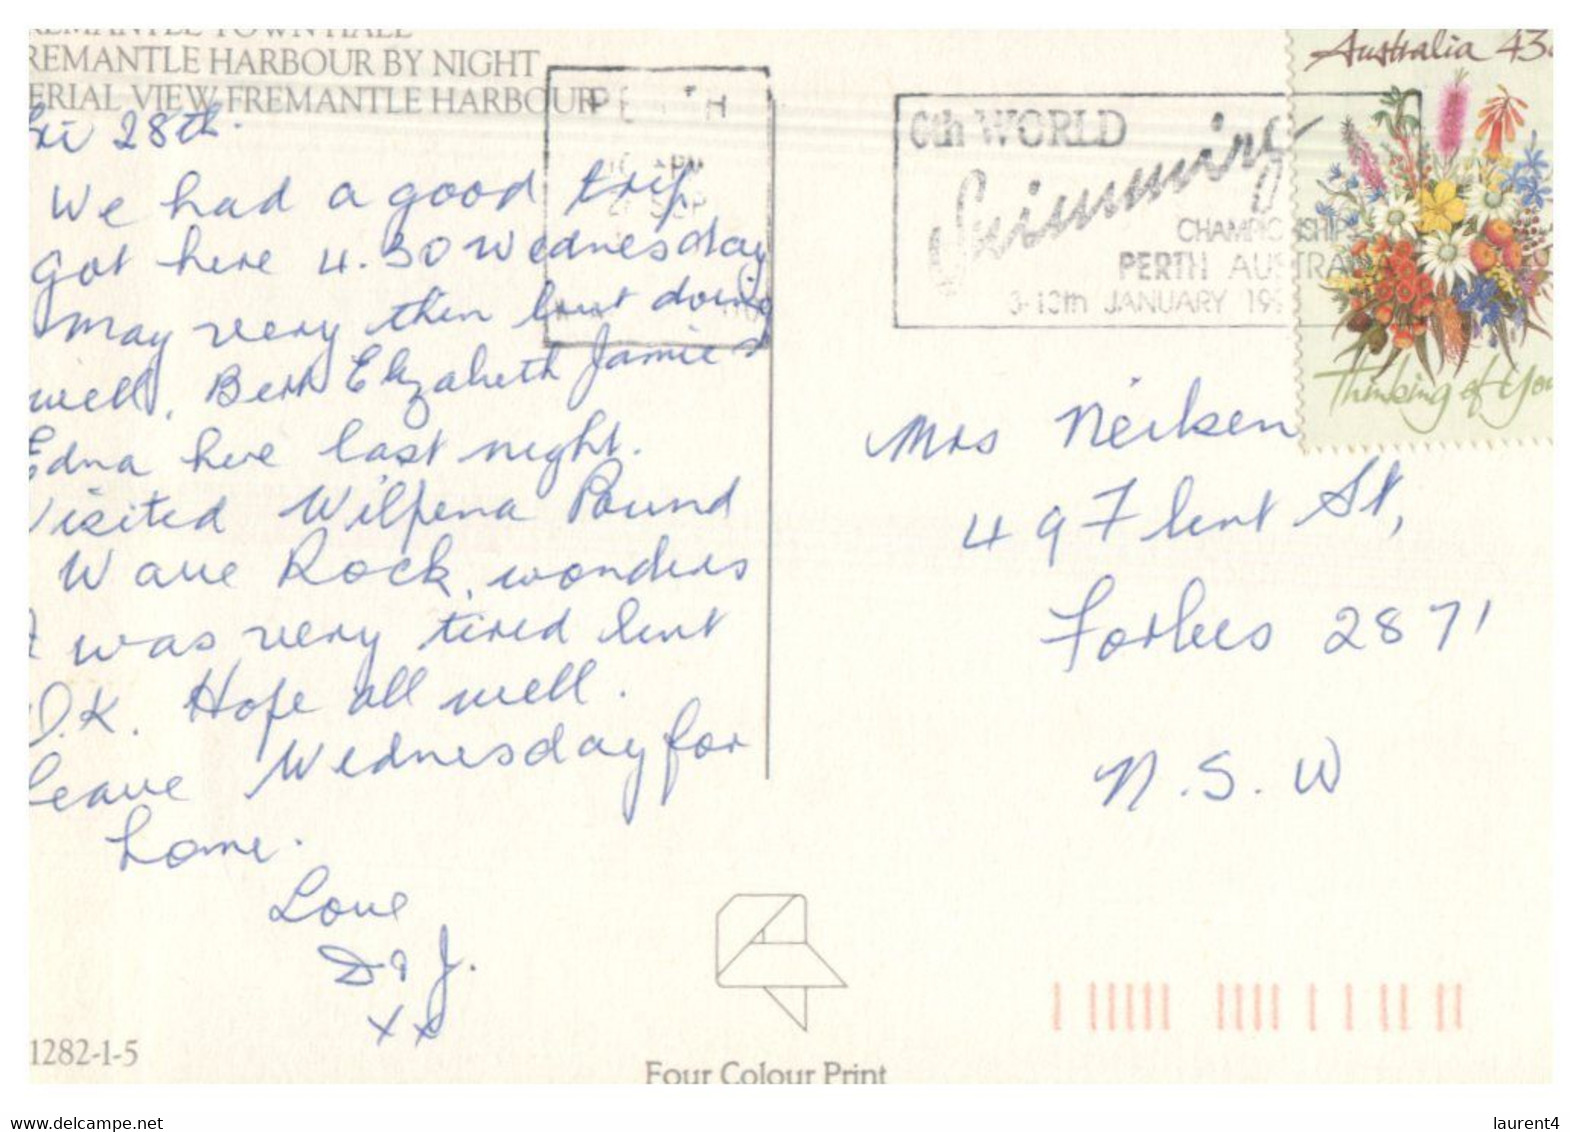 REMANTLE TOWN HALL
REMANTLE HARBOUR BY NIGHT
ERIAL VIEW FREMANTLE HARBOUR
Fri 28th.
We had a good trip,
got here 4.30 Wednesday
May very thin but doing
well, Elizabeth Jamie &
Edna here last night.
Visited Wilpena Pound
Wave Rock, wonders
I was very tired but
O.K. Hope all well.
Leave Wednesday for
home.
Love
D & J.
x x
1282-1-5
PERTH
4PM
SEP
6th WORLD
Swimming
CHAMPIONSHIPS
PERTH AUSTRALIA
3-13th JANUARY 199
Australia 43c
Thinking of You
Mrs Neilsen
49 Flint St,
Forbes 2871
N.S.W
Four Colour Print
www.delcampe.net
laurent4